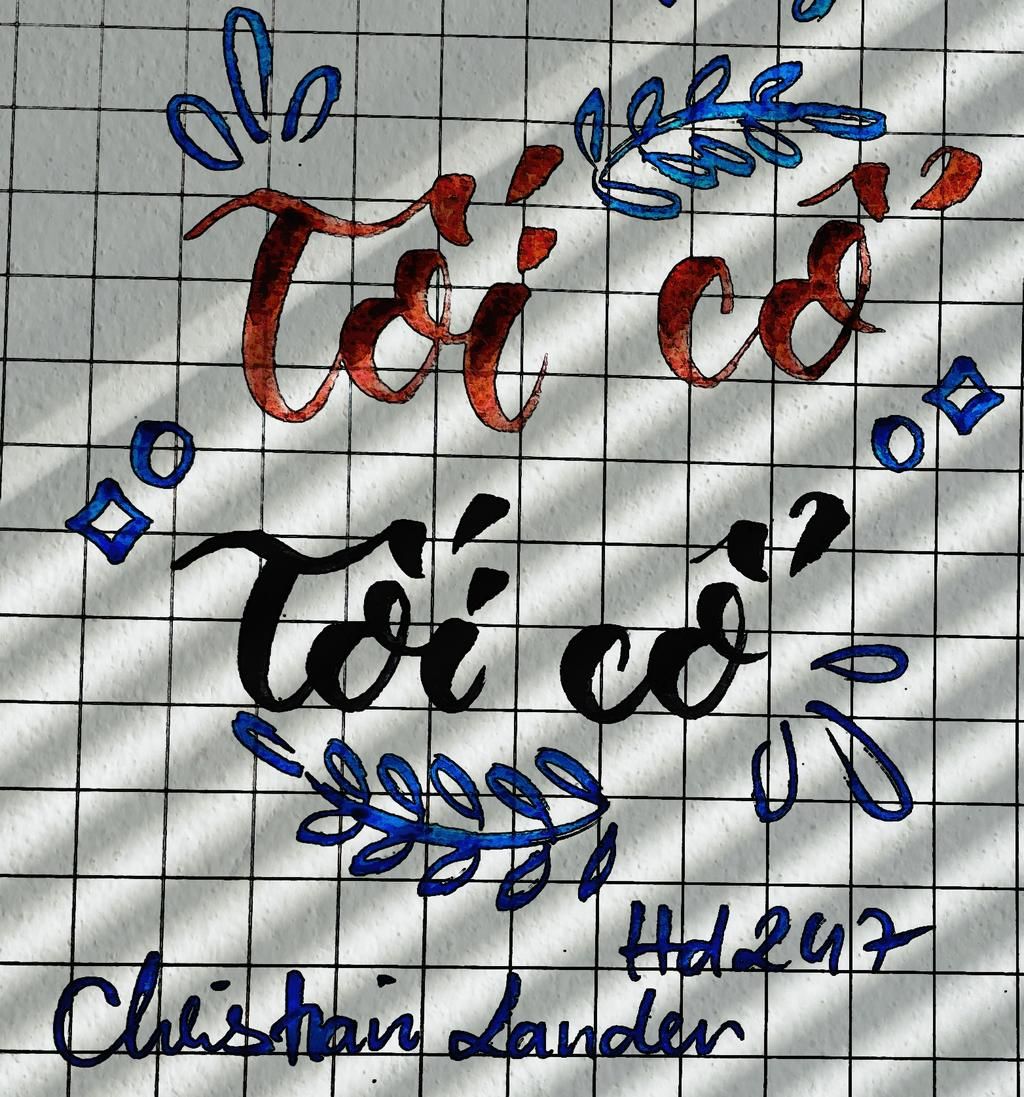 Tối cổ
Tối cổ
Hd247
Christian Lander